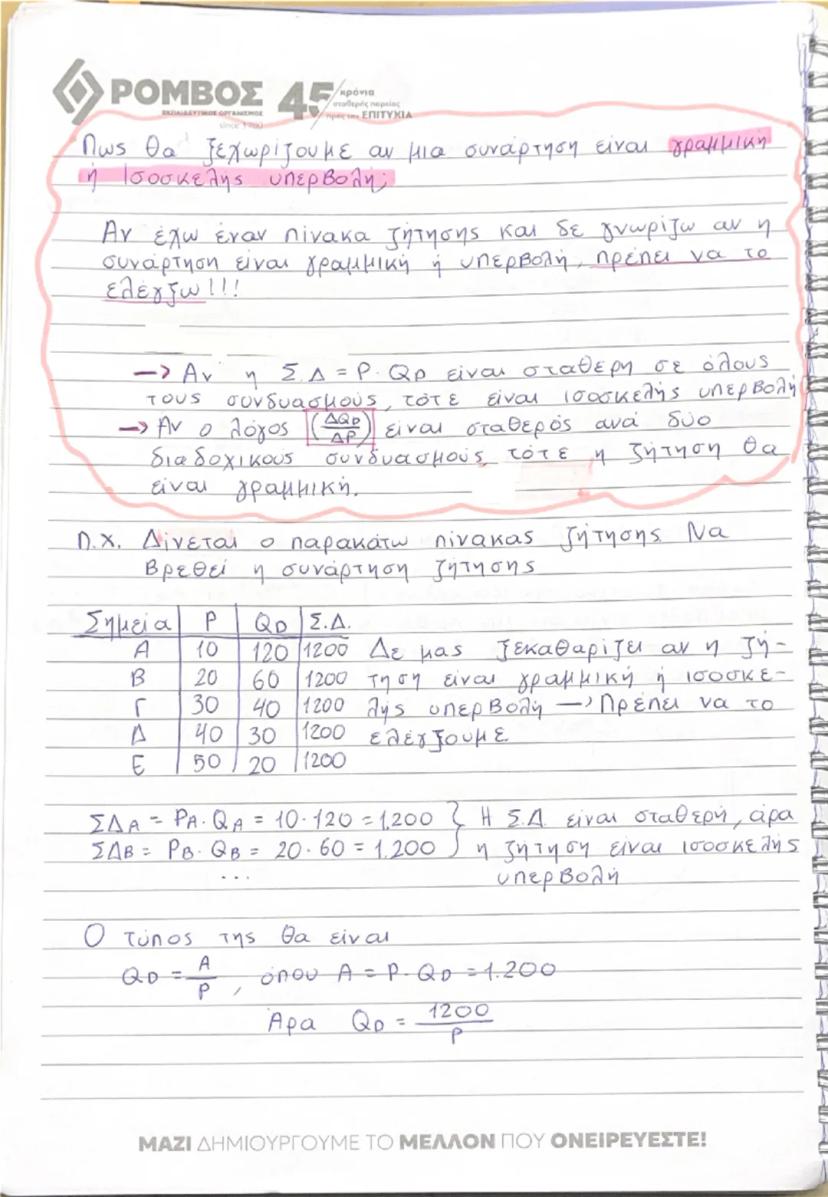 ΡΟΜΒΟΣ 45 χρόνια
ΕΚΠΑΙΔΕΥΤΙΚΟΣ ΟΡΓΑΝΙΣΜΟΣ σταθερής πορείας
since 1980 προς την ΕΠΙΤΥΧΙΑ
Πως θα ξεχωρίζουμε αν μια συνάρτηση είναι γραμμική
ή Ισοσκελής υπερβολή;
Αν έχω έναν πίνακα ζήτησης και δε γνωρίζω αν η
συνάρτηση είναι γραμμική ή υπερβολή, πρέπει να το
ελέγξω!!!
→ Αν η Σ.Δ = P. QD είναι σταθερη σε όλους
τους συνδυασμούς, τότε είναι ισοσκελής υπερβολή
→ Αν ο λόγος (ΔQD/ΔP) είναι σταθερός ανά δύο
διαδοχικους συνδυασμούς, τότε η ζήτηση θα
είναι γραμμική.
Π.Χ. Δίνεται ο παρακάτω πίνακας ζήτησης. Να
Βρεθεί η συνάρτηση ζήτησης
Σημεία P QD Σ.Δ.
Α 10 120 1200 Δε μας ξεκαθαρίζει αν η ζή-
Β 20 60 1200 τηση είναι γραμμική ή ισοσκε-
Γ 30 40 1200 λής υπερβολή → Πρέπει να το
Δ 40 30 1200 ελέγξουμε
Ε 50 20 1200
ΣΔΑ = PA · QA = 10·120 = 1.200 } Η Σ.Δ. είναι σταθερή, άρα
ΣΔΒ = PB · QB = 20·60 = 1.200 } η ζήτηση είναι ισοσκελής
... υπερβολή
Ο τύπος της θα είναι
QD = A/P, όπου A = P· QD = 1.200
Άρα QD = 1200/P
ΜΑΖΙ ΔΗΜΙΟΥΡΓΟΥΜΕ ΤΟ ΜΕΛΛΟΝ ΠΟΥ ΟΝΕΙΡΕΥΕΣΤΕ!